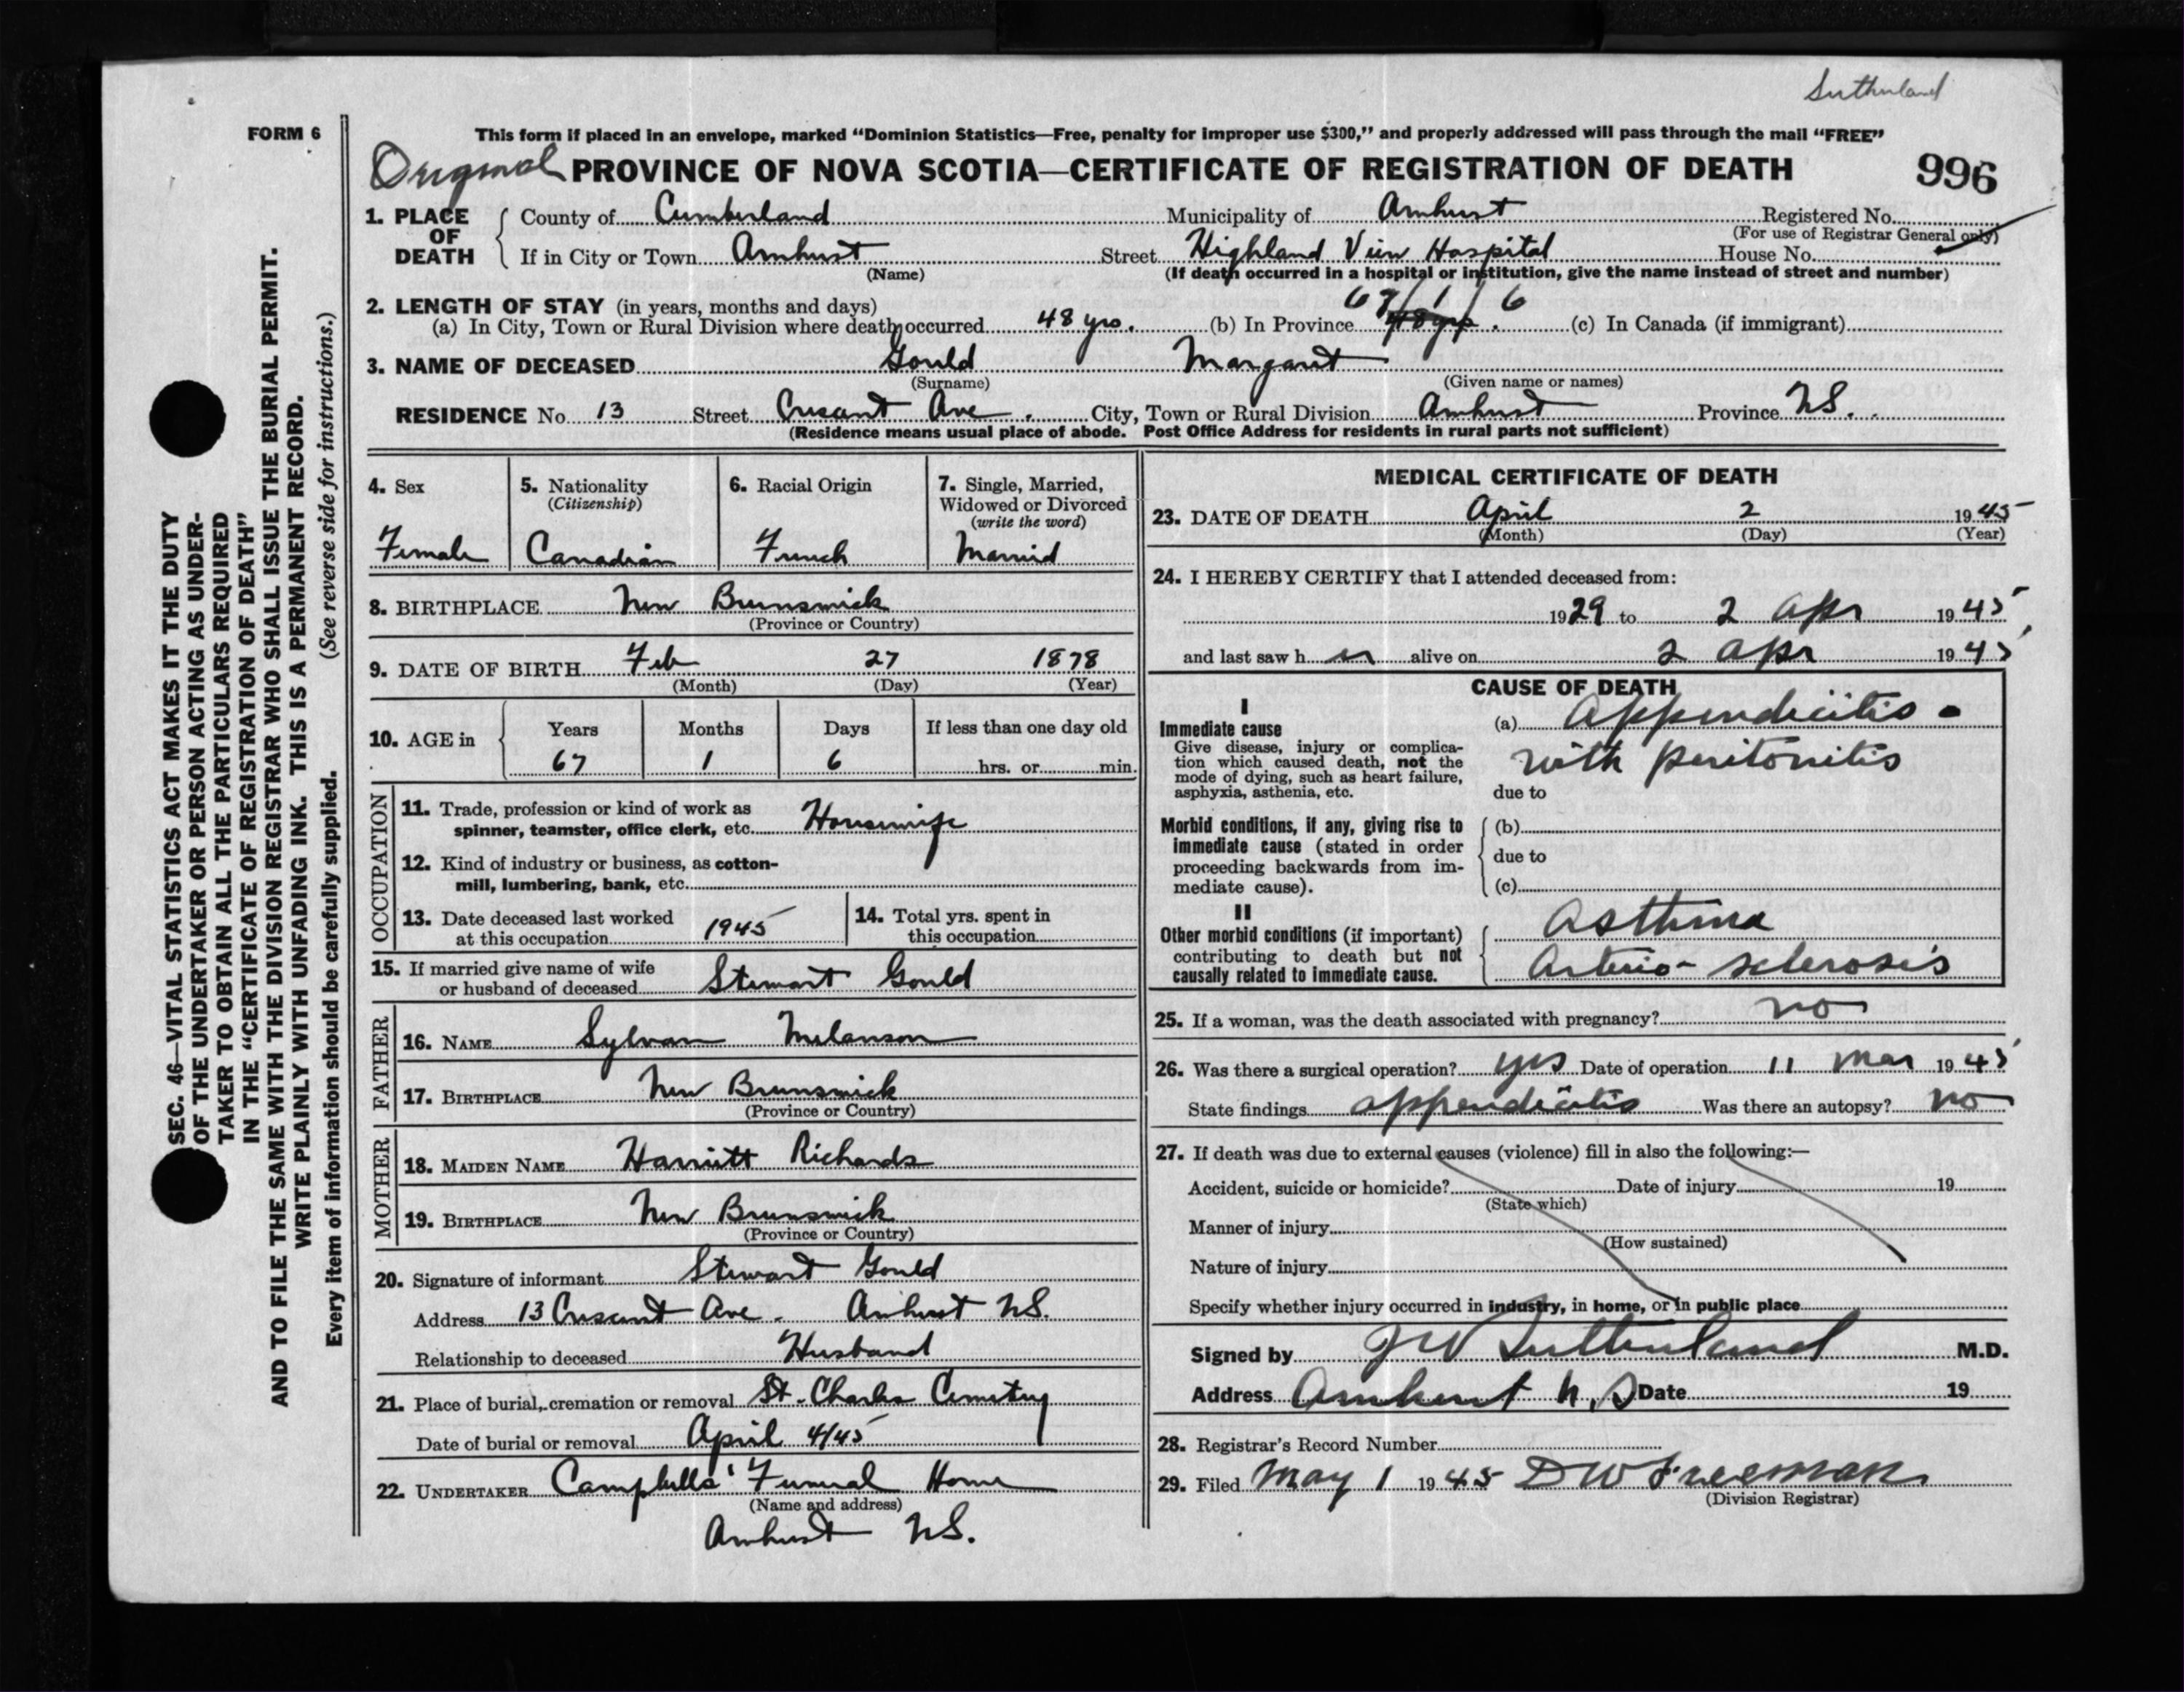 Sutherland
FORM 6
This form if placed in an envelope, marked “Dominion Statistics—Free, penalty for improper use $300,” and properly addressed will pass through the mail “FREE”
Original PROVINCE OF NOVA SCOTIA—CERTIFICATE OF REGISTRATION OF DEATH 996
1. PLACE OF DEATH County of Cumberland Municipality of Amherst Registered No.
(For use of Registrar General only)
If in City or Town Amherst Street Highland View Hospital House No.
(Name) (If death occurred in a hospital or institution, give the name instead of street and number)
2. LENGTH OF STAY (in years, months and days) 67/1/6
(a) In City, Town or Rural Division where death occurred 48 yrs. (b) In Province 48 yrs. (c) In Canada (if immigrant)
3. NAME OF DECEASED Gould Margaret
(Surname) (Given name or names)
RESIDENCE No. 13 Street Cresent Ave. City, Town or Rural Division Amherst Province N.S.
(Residence means usual place of abode. Post Office Address for residents in rural parts not sufficient)
4. Sex 5. Nationality 6. Racial Origin 7. Single, Married,
(Citizenship) Widowed or Divorced
(write the word)
Female Canadian French Married
8. BIRTHPLACE New Brunswick
(Province or Country)
9. DATE OF BIRTH Feb 27 1878
(Month) (Day) (Year)
10. AGE in Years Months Days If less than one day old
67 1 6 hrs. or min.
OCCUPATION
11. Trade, profession or kind of work as
spinner, teamster, office clerk, etc. Housewife
12. Kind of industry or business, as cotton-
mill, lumbering, bank, etc.
13. Date deceased last worked 14. Total yrs. spent in
at this occupation 1945 this occupation
15. If married give name of wife
or husband of deceased Stewart Gould
FATHER
16. NAME Sylvan Melanson
17. BIRTHPLACE New Brunswick
(Province or Country)
MOTHER
18. MAIDEN NAME Harriett Richards
19. BIRTHPLACE New Brunswick
(Province or Country)
20. Signature of informant Stewart Gould
Address 13 Cresent Ave. Amherst N.S.
Relationship to deceased Husband
21. Place of burial, cremation or removal St. Charles Cemetery
Date of burial or removal April 4/45
22. UNDERTAKER Campbells' Funeral Home
(Name and address)
Amherst N.S.
MEDICAL CERTIFICATE OF DEATH
23. DATE OF DEATH April 2 1945
(Month) (Day) (Year)
24. I HEREBY CERTIFY that I attended deceased from:
1929 to 2 Apr 1945
and last saw h er alive on 2 Apr 1945
CAUSE OF DEATH
I
Immediate cause (a) Appendicitis
Give disease, injury or complica-
tion which caused death, not the with peritonitis
mode of dying, such as heart failure,
asphyxia, asthenia, etc. due to
Morbid conditions, if any, giving rise to (b)
immediate cause (stated in order
proceeding backwards from im- due to
mediate cause). (c)
II
Other morbid conditions (if important) Asthma
contributing to death but not
causally related to immediate cause. Arterio-sclerosis
25. If a woman, was the death associated with pregnancy? no
26. Was there a surgical operation? yes Date of operation 11 Mar 1945
State findings appendicitis Was there an autopsy? no
27. If death was due to external causes (violence) fill in also the following:—
Accident, suicide or homicide? Date of injury 19
(State which)
Manner of injury
(How sustained)
Nature of injury
Specify whether injury occurred in industry, in home, or in public place
Signed by J W Sutherland M.D.
Address Amherst N.S Date 19
28. Registrar's Record Number
29. Filed May 1 1945 D W Freeman
(Division Registrar)
SEC. 46—VITAL STATISTICS ACT MAKES IT THE DUTY
OF THE UNDERTAKER OR PERSON ACTING AS UNDER-
TAKER TO OBTAIN ALL THE PARTICULARS REQUIRED
IN THE “CERTIFICATE OF REGISTRATION OF DEATH”
AND TO FILE THE SAME WITH THE DIVISION REGISTRAR WHO SHALL ISSUE THE BURIAL PERMIT.
WRITE PLAINLY WITH UNFADING INK. THIS IS A PERMANENT RECORD.
Every item of information should be carefully supplied. (See reverse side for instructions.)